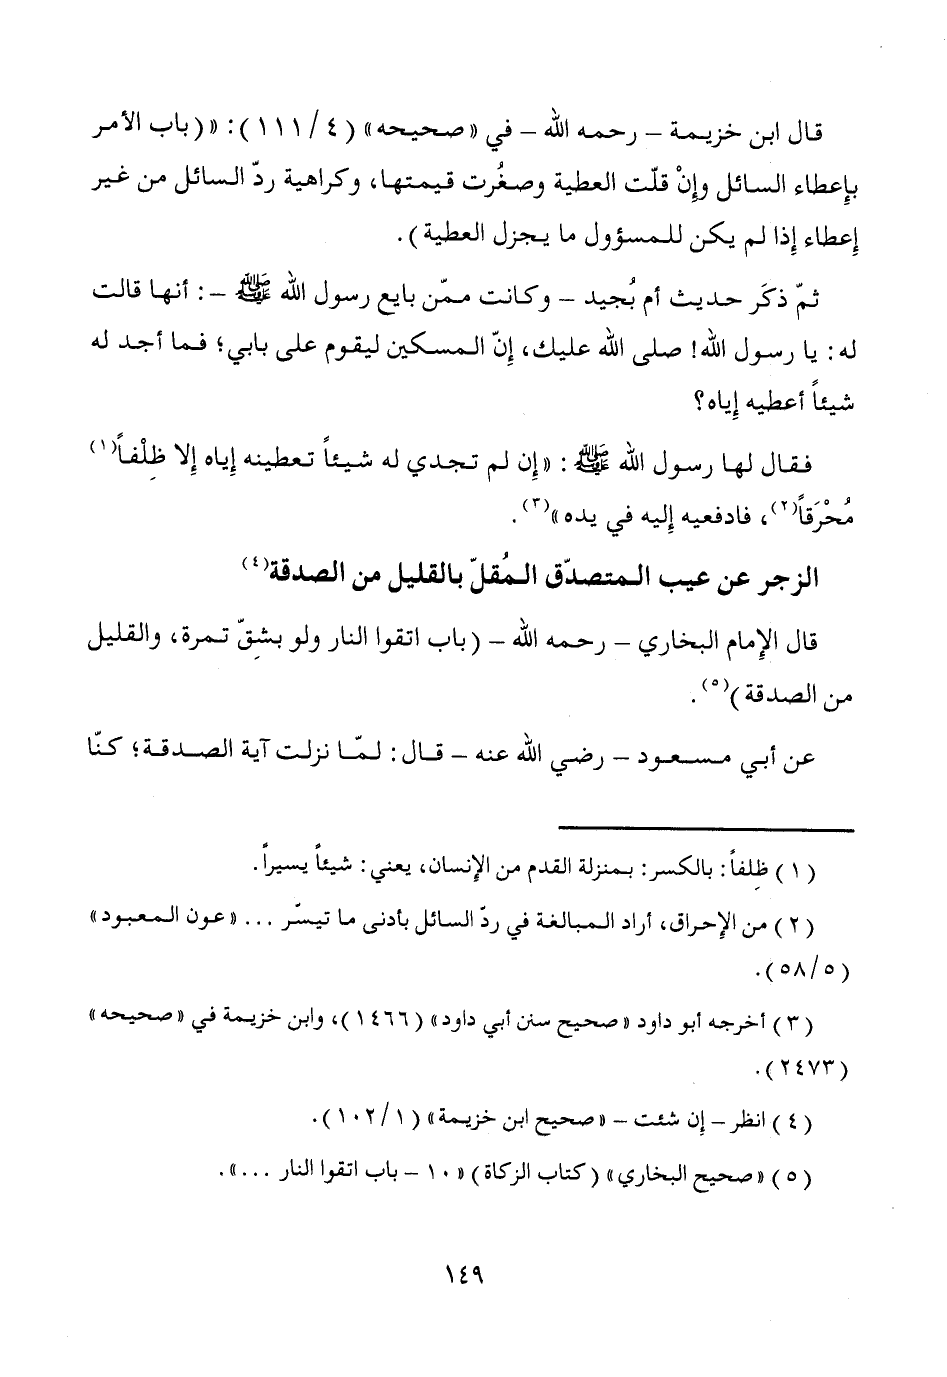 قال ابن خزيمة – رحمه الله – في «صحيحه» (٤/ ١١١): «(باب الأمر
بإعطاء السائل وإنْ قلّت العطية وصغُرت قيمتها، وكراهية ردّ السائل من غير
إعطاء إذا لم يكن للمسؤول ما يجزل العطية).
ثمّ ذكَر حديث أم بُجيد – وكانت ممّن بايع رسول الله ﷺ –: أنها قالت
له: يا رسول الله! صلى الله عليك، إنّ المسكين ليقوم على بابي؛ فما أجد له
شيئاً أعطيه إياه؟
فقال لها رسول الله ﷺ: «إن لم تجدي له شيئاً تعطينه إياه إلا ظِلْفاً(١)
مُحْرَقاً(٢)، فادفعيه إليه في يده»(٣).
الزجر عن عيب المتصدّق المُقلّ بالقليل من الصدقة(٤)
قال الإمام البخاري – رحمه الله – (باب اتقوا النار ولو بشِقّ تمرة، والقليل
من الصدقة)(٥).
عن أبي مسعود – رضي الله عنه – قال: لمّا نزلت آية الصدقة؛ كنّا
(١) ظِلفاً: بالكسر: بمنزلة القدم من الإنسان، يعني: شيئاً يسيراً.
(٢) من الإحراق، أراد المبالغة في ردّ السائل بأدنى ما تيسّر ... «عون المعبود»
(٥/ ٥٨).
(٣) أخرجه أبو داود «صحيح سنن أبي داود» (١٤٦٦)، وابن خزيمة في «صحيحه»
(٢٤٧٣).
(٤) انظر – إن شئت – «صحيح ابن خزيمة» (١/ ١٠٢).
(٥) «صحيح البخاري» (كتاب الزكاة) «١٠ – باب اتقوا النار ...».
١٤٩